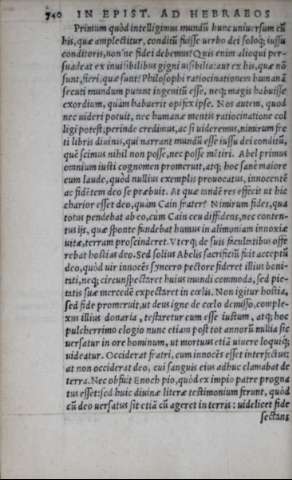 740 IN EPIST. AD HEBRAEOS
Primum quòd intelligimus mundũ hunc uniuersum cũ
his, quæ amplectitur, conditũ fuisse uerbo dei soloq; iussu
conditoris, non ne fidei debemus? Quis enim alioqui per-
suadeat ex inuisibilibus gigni uisibilia: aut ex his, quæ nõ
sunt, fieri, quæ sunt? Philosophi ratiocinationem humanã
secuti mundum putant ingenitũ esse, neq; magis habuisse
exordium, quàm habuerit opifex ipse. Nos autem, quod
nec uideri potuit, nec humanæ mentis ratiocinatione col
ligi potest, perinde credimus, ac si uideremus, nimirum fre
ti libris diuinis, qui narrant mundũ esse iussu dei conditũ,
quẽ scimus nihil non posse, nec posse mẽtiri. Abel primus
omnium iusti cognomen promeruit, atq; hoc sanè maiore
cum laude, quòd nullius exemplis prouocatus, innocentẽ
ac fidẽtem deo se præbuit. At quæ tandẽ res effecit ut hic
charior esset deo, quàm Cain frater? Nimirum fides, qua
totus pendebat ab eo, cùm Cain ceu diffidens, nec conten-
tus ijs, quæ sponte fundebat humus in alimoniam innoxiæ
uitæ, terram proscinderet. Vterq; de suis facultatibus offe
rebat hostias deo. Sed solius Abelis sacrificiũ fuit acceptũ
deo, quòd uir innocẽs syncero pectore fideret illius boni-
tati, neq; circunspectaret huius mundi commoda, sed pie-
tatis suæ mercedẽ expectaret in cœlis. Non igitur hostia,
sed fide promeruit, ut deus igne de cœlo demisso, comple-
xus illius donaria, testaretur eum esse iustum, atq; hoc
pulcherrimo elogio nunc etiam post tot annorũ millia sic
uersatur in ore hominum, ut mortuus etiã uiuere loquiq;
uideatur. Occiderat fratri, cum innocẽs esset interfectus:
at non occiderat deo, cui sanguis eius adhuc clamabat de
terra. Nec obfuit Enoch pio, quòd ex impio patre progna
tus esset: sed huic diuinæ literæ testimonium ferunt, quòd
cũ deo uersatus sit etiã cũ ageret in terris: uidelicet fide
sectans